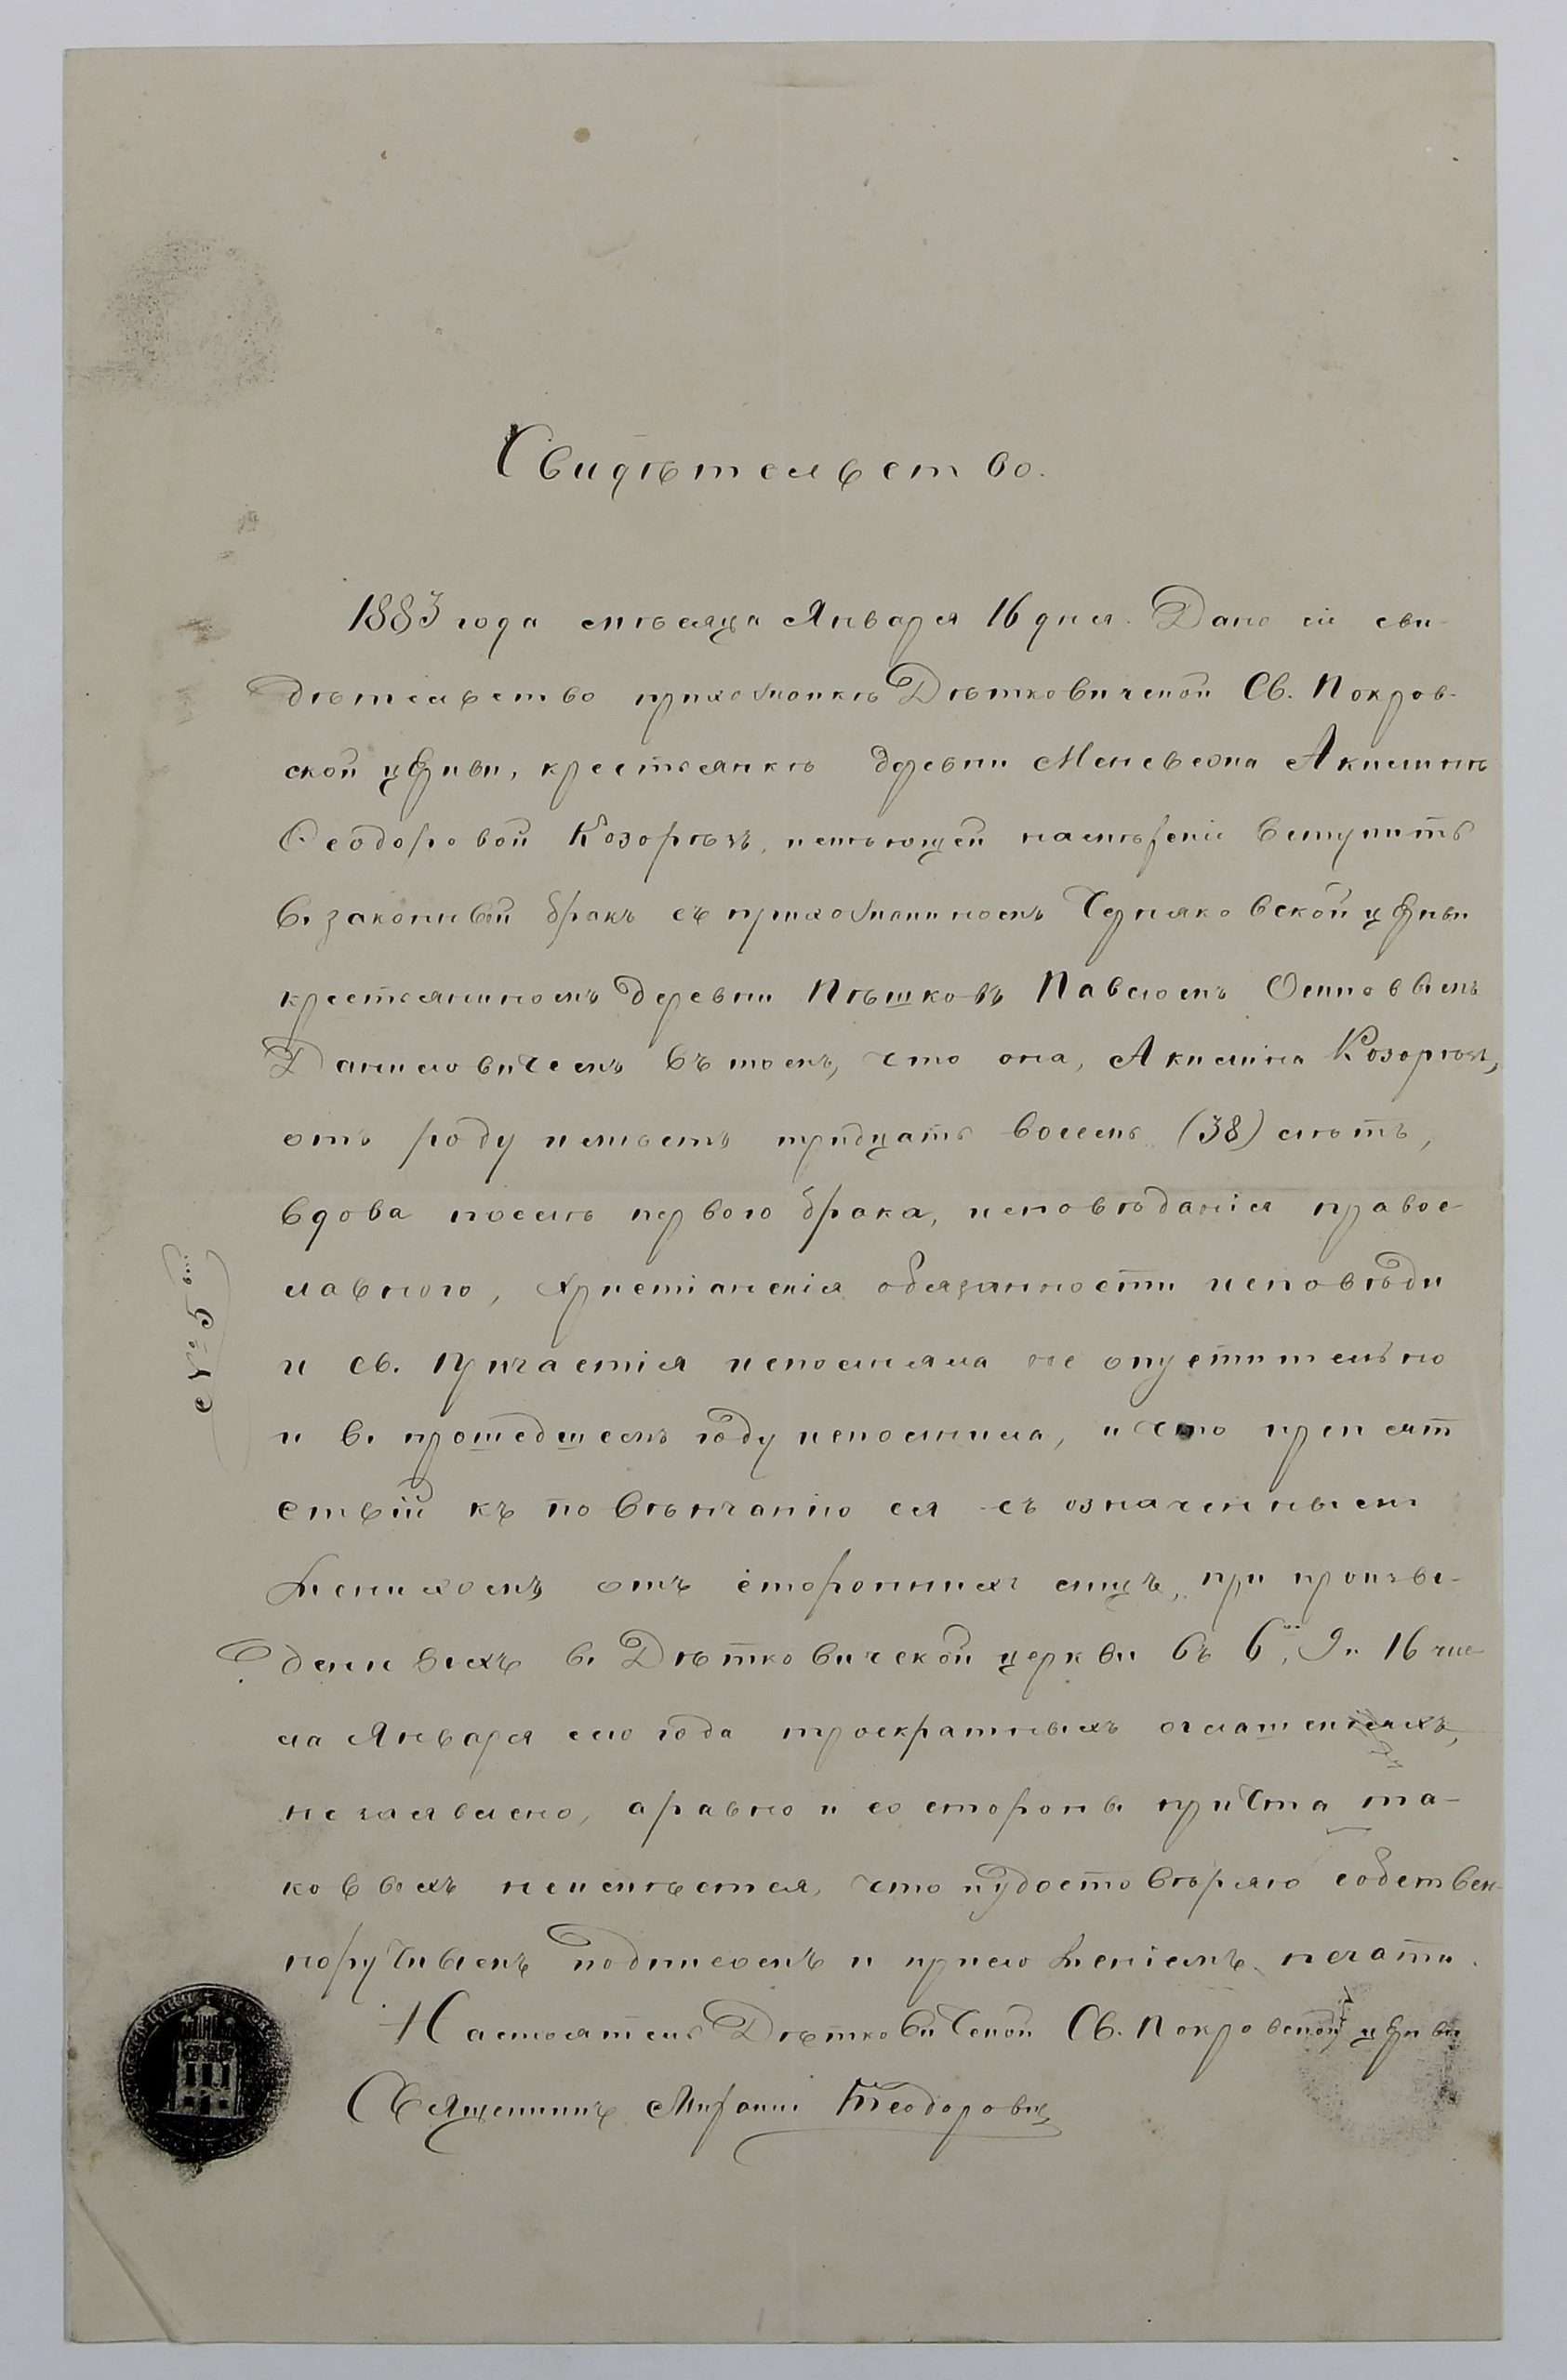 Свидѣтельство.
1883 года мѣсяца Января 16 дня. Дано сіе сви-
дѣтельство прихожанкѣ Дѣтковичской Св. Покров-
ской церкви, крестьянкѣ деревни Меневежа Акилинѣ
Ѳеодоровой Козорѣзъ, имѣющей намѣреніе вступить
въ законный бракъ съ прихожаниномъ Черняковской церкви
крестьяниномъ деревни Пѣшковъ Павломъ Осиповымъ
Даниловичемъ въ томъ, что она, Акилина Козорѣзъ,
отъ роду имѣетъ тридцать восемь (38) лѣтъ,
вдова послѣ первого брака, исповѣданія правос-
лавного, христіанскія обязанности исповѣди
и св. Причастія исполняла не опустительно
и въ прошедшемъ году исполнила, и что препят
ствій къ повѣнчанію ея съ означеннымъ
женихомъ отъ стороннихъ лицъ, при произве-
денныхъ въ Дѣтковичской церкви въ 6, 9 и 16 чис-
ла Января сего года троекратныхъ оглашеніяхъ,
не заявлено, а равно и со стороны причта та-
ковыхъ неимѣется, что и удостовѣряю собствен-
норучнымъ подписомъ и приложеніемъ печати.
Настоятель Дѣтковичской Св. Покровской церкви
Священникъ Мифаній Теодоровичъ
№ 5